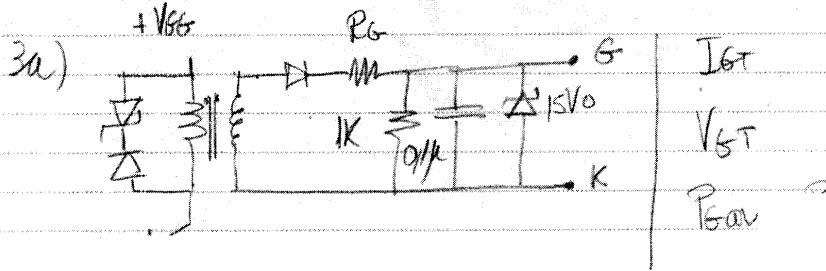 3a)
+VGG
RG
G
1K
0,1µ
15V0
K
IGT
VGT
PGav